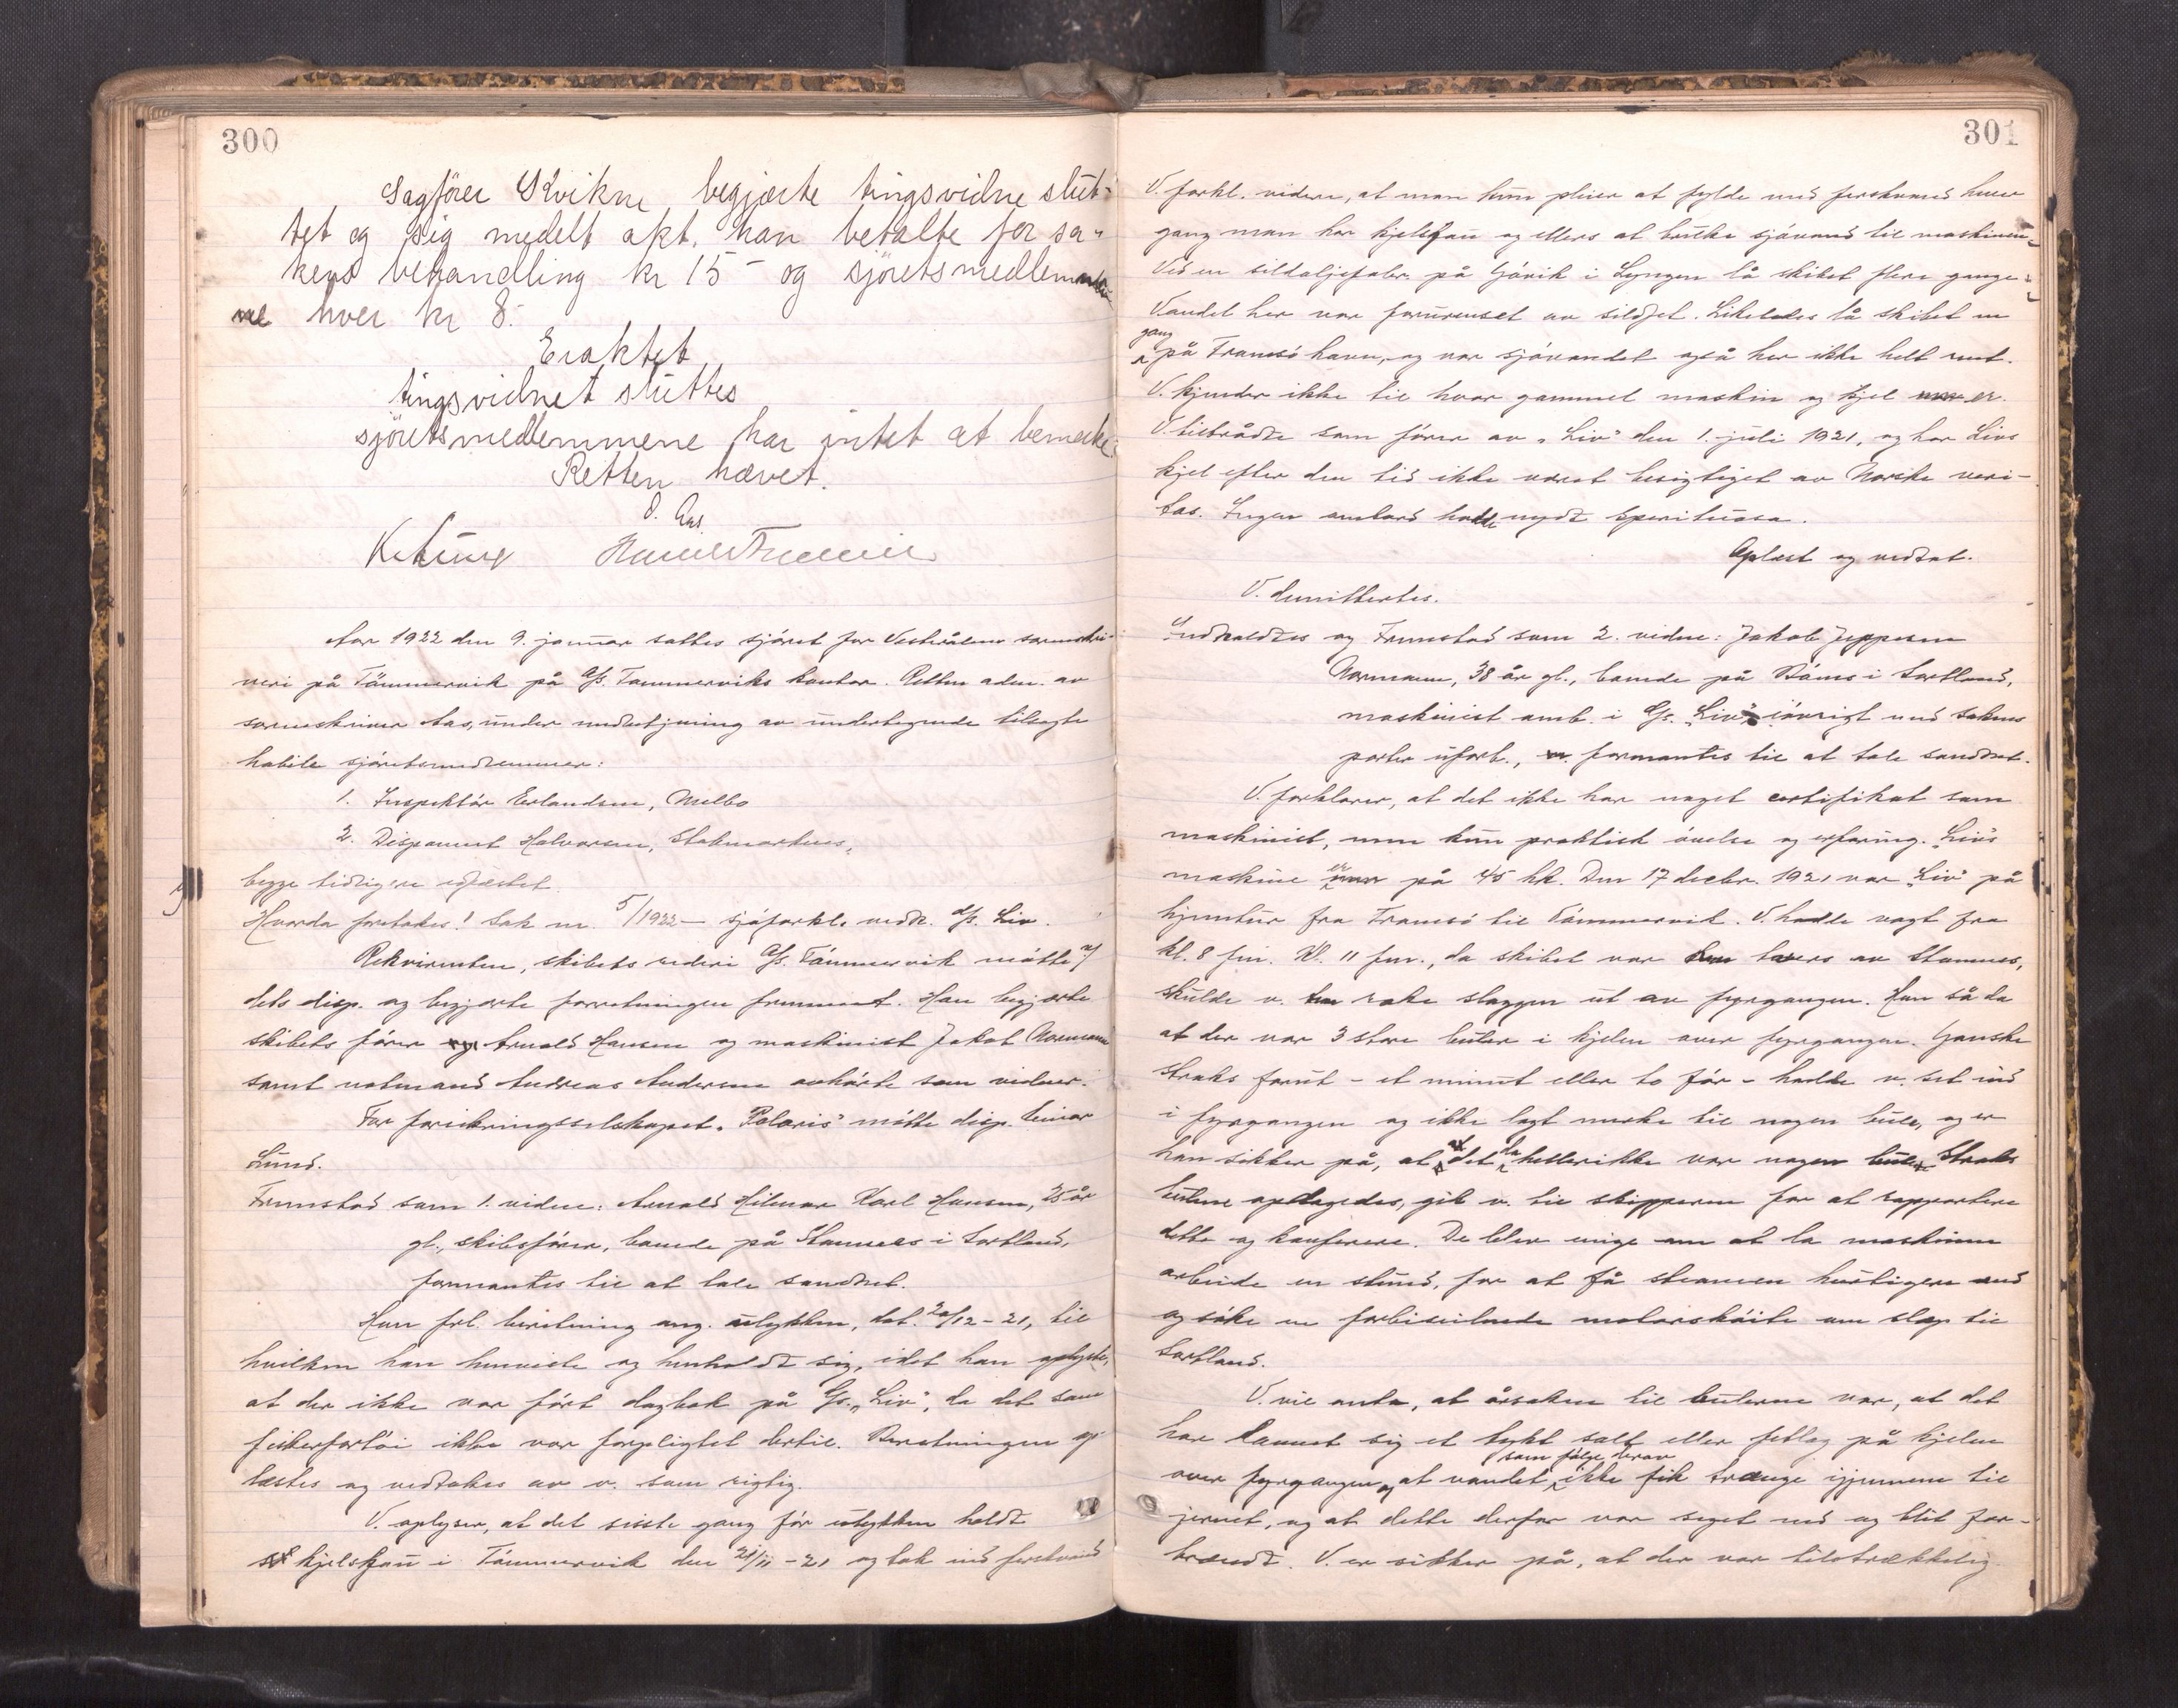 300
Sagfører Kvikne begjærte tingsvidne slut-
tet og sig medelt akt. han betalte for sa-
kens behandling kr 15 - og sjøretsmedlemme
ne hver kr 8.
Eraktet
tingsvidnet sluttes
sjøretsmedlemmene har intet at bemerke.
Retten hævet.
O. Aas
Aar 1922 den 9. januar sattes sjøret for Vesterålens sorenskri-
veri på Tømmervik på A/s. Tømmerviks kontor. Retten adm. av
sorenskriver Aas, under medbetjening av undertegnede tilsagte
habile sjøretsmedlemmer:
1. Inspektør Erlandsen, Melbo
2. Disponent Halvorsen, Stokmarknes,
begge tidligere edfæstet.
Hvorda foretokes: Sak nr. 5/1922 - sjøforkl. vedk. D/s. Liv.
Rekvirenten, skibets rederi A/s. Tømmervik møtte v/
dets disp. og begjærte forretningen fremmet. Han begjærte
skibets fører Arnold Hansen og maskinist Jakob Normann
samt notmand Andreas Andersen avhørte som vidner.
For forsikringsselskapet "Polaris" møtte disp. Einar
Lund.
Fremstod som 1. vidne: Arnold Hilmar Karl Hansen, 25 år
gl., skibsfører, boende på Stamnes i Sortland,
formantes til at tale sandhet.
Han frl. beretning ang. ulykken, dat. 20/12-21, til
hvilken han henviste og henholdt sig, idet han oplyste,
at der ikke var ført dagbok på D/s. "Liv", da det som
fiskerfartøi ikke var forpligtet dertil. Beretningen op-
læstes og vedtokes av v. som rigtig.
V. oplyser, at det sisste gang før ulykken holdt
kjelefan i Tømmervik den 21/11-21 og tok ind ferskvand
301
V. forkl. videre, at man kun pleier at fylde med ferskvand hver
gang man har kjelefan og ellers at bruke sjøvand til maskinen.
Ved en sildoljefabr. på Gjøvik i Lyngen lå skibet flere gange.
Vandet her var forurenset av sildfet. Likeledes lå skibet en
gang på Tromsø havn, og var sjøvandet også her ikke helt rent.
V. kjender ikke til hvor gammel maskin og kjel er.
V. tiltrådte som fører av "Liv" den 1. juli 1921, og har Livs
kjel efter den tid ikke været besigtiget av Norske veri-
tas. Ingen ombord hadde nydt spirituosa.
Oplæst og vedtat.
V. demitteres.
Indkaldtes og Fremstod som 2. vidne: Jakob Jeppesen
Normann, 38 år gl., boende på i Sortland,
maskinist omb. i D/s. "Liv", iøvrigt med sakens
parter ubesl., formantes til at tale sandhet.
V. forklarer, at det ikke har noget certifikat som
maskinist, men kun praktisk øvelse og erfaring. "Liv"s
maskine er på 45 hk. Den 17 decbr. 1921 var "Liv" på
hjemtur fra Tromsø til Tømmervik. V. hadde vagt fra
kl. 8 fm. Kl. 11 fm., da skibet var tvers av Stamnes,
skulde v. rake slaggen ut av fyrgangen. Han så da
at der var 3 store buler i kjelen over fyrgangen. Ganske
straks forut - et minut eller to før - hadde v. set ind
i fyrgangen og ikke lagt merke til nogen bule, og er
han sikker på, at det da heller ikke var nogen bule. Straks
bulene opdagedes, gik v. til skipperen for at rapportere
dette og konferere. De blev enige om at la maskinen
arbeide en stund, for at få steamen hurtigere ned
og søke en forbiseilende motorskøite om slæp til
Sortland.
V. vil anta, at årsaken til bulerne var, at det
har dannet sig et tykt salt eller fetlag på kjelen
over fyrgangen, og at vandet som følge derav ikke fik trænge igjennem til
jernet, og at dette derfor var seget ned og blit for-
brændt. V. er sikker på, at der var tilstrækkelig